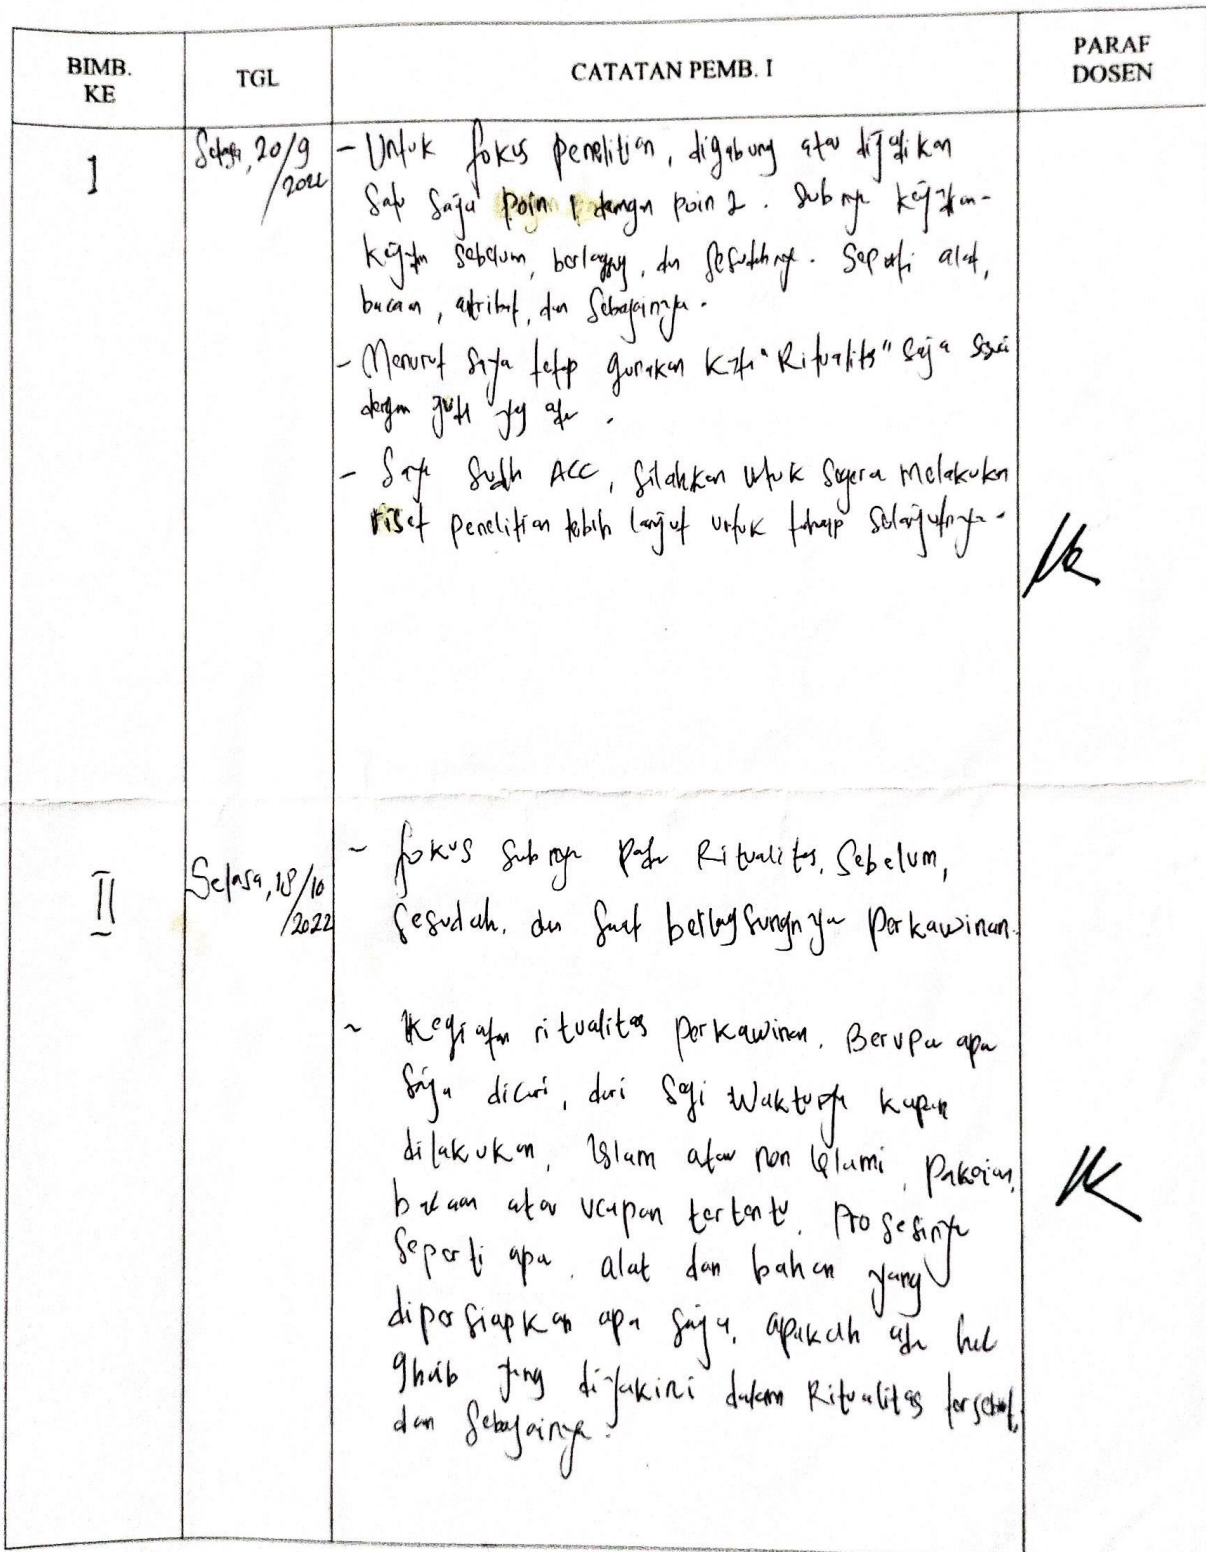 BIMB. KE
TGL
CATATAN PEMB. I
PARAF DOSEN
I
Selasa, 20/9
/2022
- Untuk fokus penelitian, digabung atau dijadikan
satu saja poin 1 dengan poin 2. Subnya kegiatan-
kegiatan sebelum, berlangsung, dan sesudahnya. Seperti alat,
bacaan, atribut, dan sebagainya.
- Menurut saya tetap gunakan kata "Ritualitas" saja sesuai
dengan judul yg ada.
- Saya sudah ACC, silahkan untuk segera melakukan
riset penelitian lebih lanjut untuk tahap selanjutnya.
II
Selasa, 18/10
/2022
~ fokus subnya pada Ritualitas, Sebelum,
sesudah, dan saat berlangsungnya perkawinan.
~ Kegiatan ritualitas perkawinan. Berupa apa
saja dicari, dari segi waktunya kapan
dilakukan, Islam atau non Islami, pakaian,
bacaan atau ucapan tertentu, Prosesinya
seperti apa, alat dan bahan yang
dipersiapkan apa saja, apakah ada hal
ghaib yang diyakini dalam Ritualitas tersebut,
dan sebagainya.